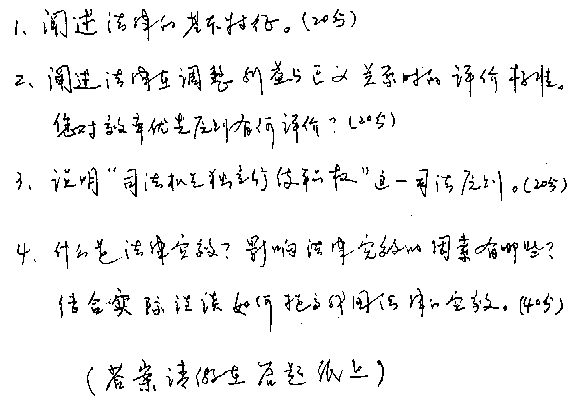 1、阐述法律的基本特征。(20分)
2、阐述法律在调整利益与正义关系时的评价标准。
您对效率优先原则有何评价？(20分)
3、说明“司法机关独立行使职权”这一司法原则。(20分)
4、什么是法律实效？影响法律实效的因素有哪些？
结合实际谈谈如何提高我国法律的实效。(40分)
(答案请做在答题纸上)